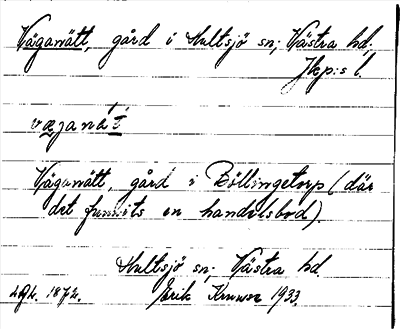 Väganätt, gård i Hultsjö sn; Västra hd;
Jkp:s l.
Väganätt, gård i Böllingetorp (där
det funnits en handelsbod).
Hultsjö sn; Västra hd.
Erik 1933.